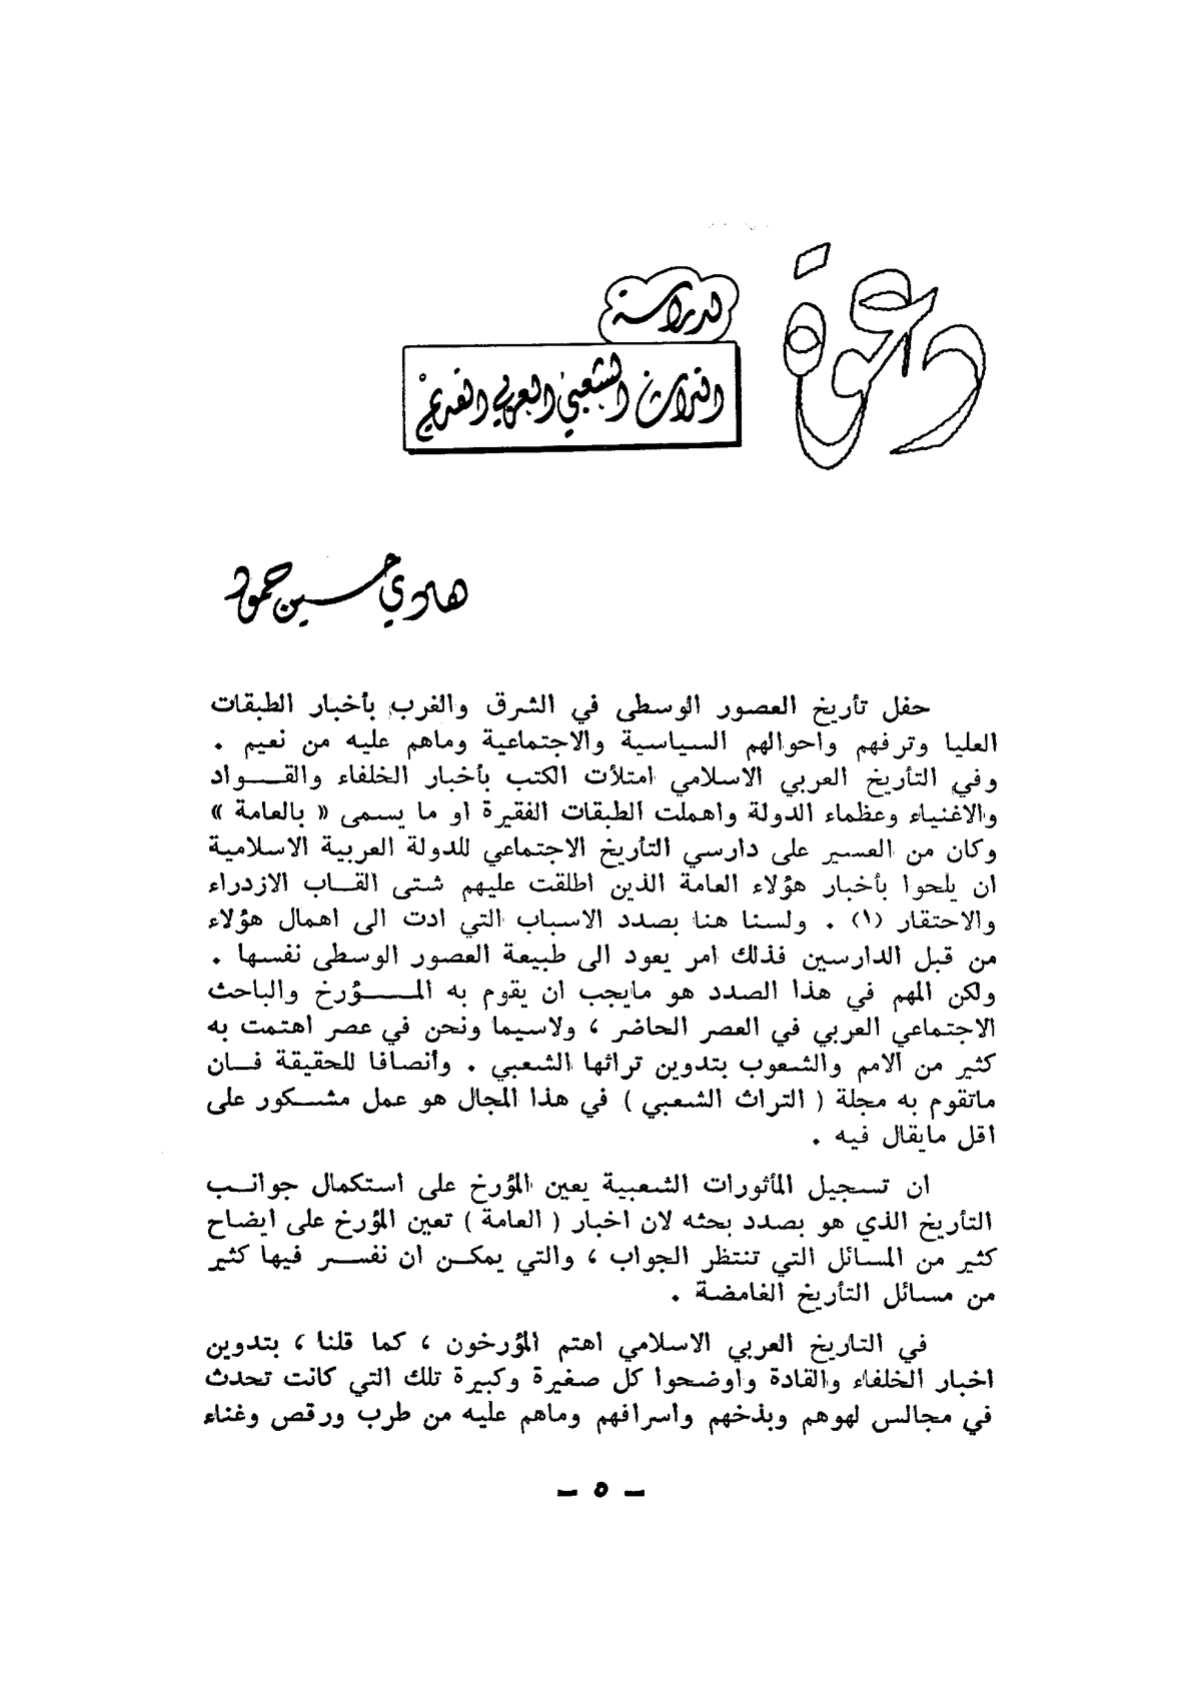 دعوة
لدراسة
التراث الشعبي العربي القديم
هادي حسين حمود
حفل تأريخ العصور الوسطى في الشرق والغرب بأخبار الطبقات
العليا وترفهم واحوالهم السياسية والاجتماعية وماهم عليه من نعيم .
وفي التأريخ العربي الاسلامي امتلأت الكتب بأخبار الخلفاء والقـــواد
والاغنياء وعظماء الدولة واهملت الطبقات الفقيرة او ما يسمى « بالعامة »
وكان من العسير على دارسي التأريخ الاجتماعي للدولة العربية الاسلامية
ان يلحوا بأخبار هؤلاء العامة الذين اطلقت عليهم شتى القـاب الازدراء
والاحتقار (١) . ولسنا هنا بصدد الاسباب التي ادت الى اهمال هؤلاء
من قبل الدارسين فذلك امر يعود الى طبيعة العصور الوسطى نفسها .
ولكن المهم في هذا الصدد هو مايجب ان يقوم به المـــؤرخ والباحث
الاجتماعي العربي في العصر الحاضر ، ولاسيما ونحن في عصر اهتمت به
كثير من الامم والشعوب بتدوين تراثها الشعبي . وأنصافا للحقيقة فـان
ماتقوم به مجلة ( التراث الشعبي ) في هذا المجال هو عمل مشـكور على
اقل مايقال فيه .
ان تسجيل المأثورات الشعبية يعين المؤرخ على استكمال جوانـب
التأريخ الذي هو بصدد بحثه لان اخبار ( العامة ) تعين المؤرخ على ايضاح
كثير من المسائل التي تنتظر الجواب ، والتي يمكـن ان نفسـر فيها كثير
من مسائل التأريخ الغامضة .
في التاريخ العربي الاسلامي اهتم المؤرخون ، كما قلنا ، بتدوين
اخبار الخلفاء والقادة واوضحوا كل صغيرة وكبيرة تلك التي كانت تحدث
في مجالس لهوهم وبذخهم واسرافهم وماهم عليه من طرب ورقص وغناء
ــ ٥ ــ